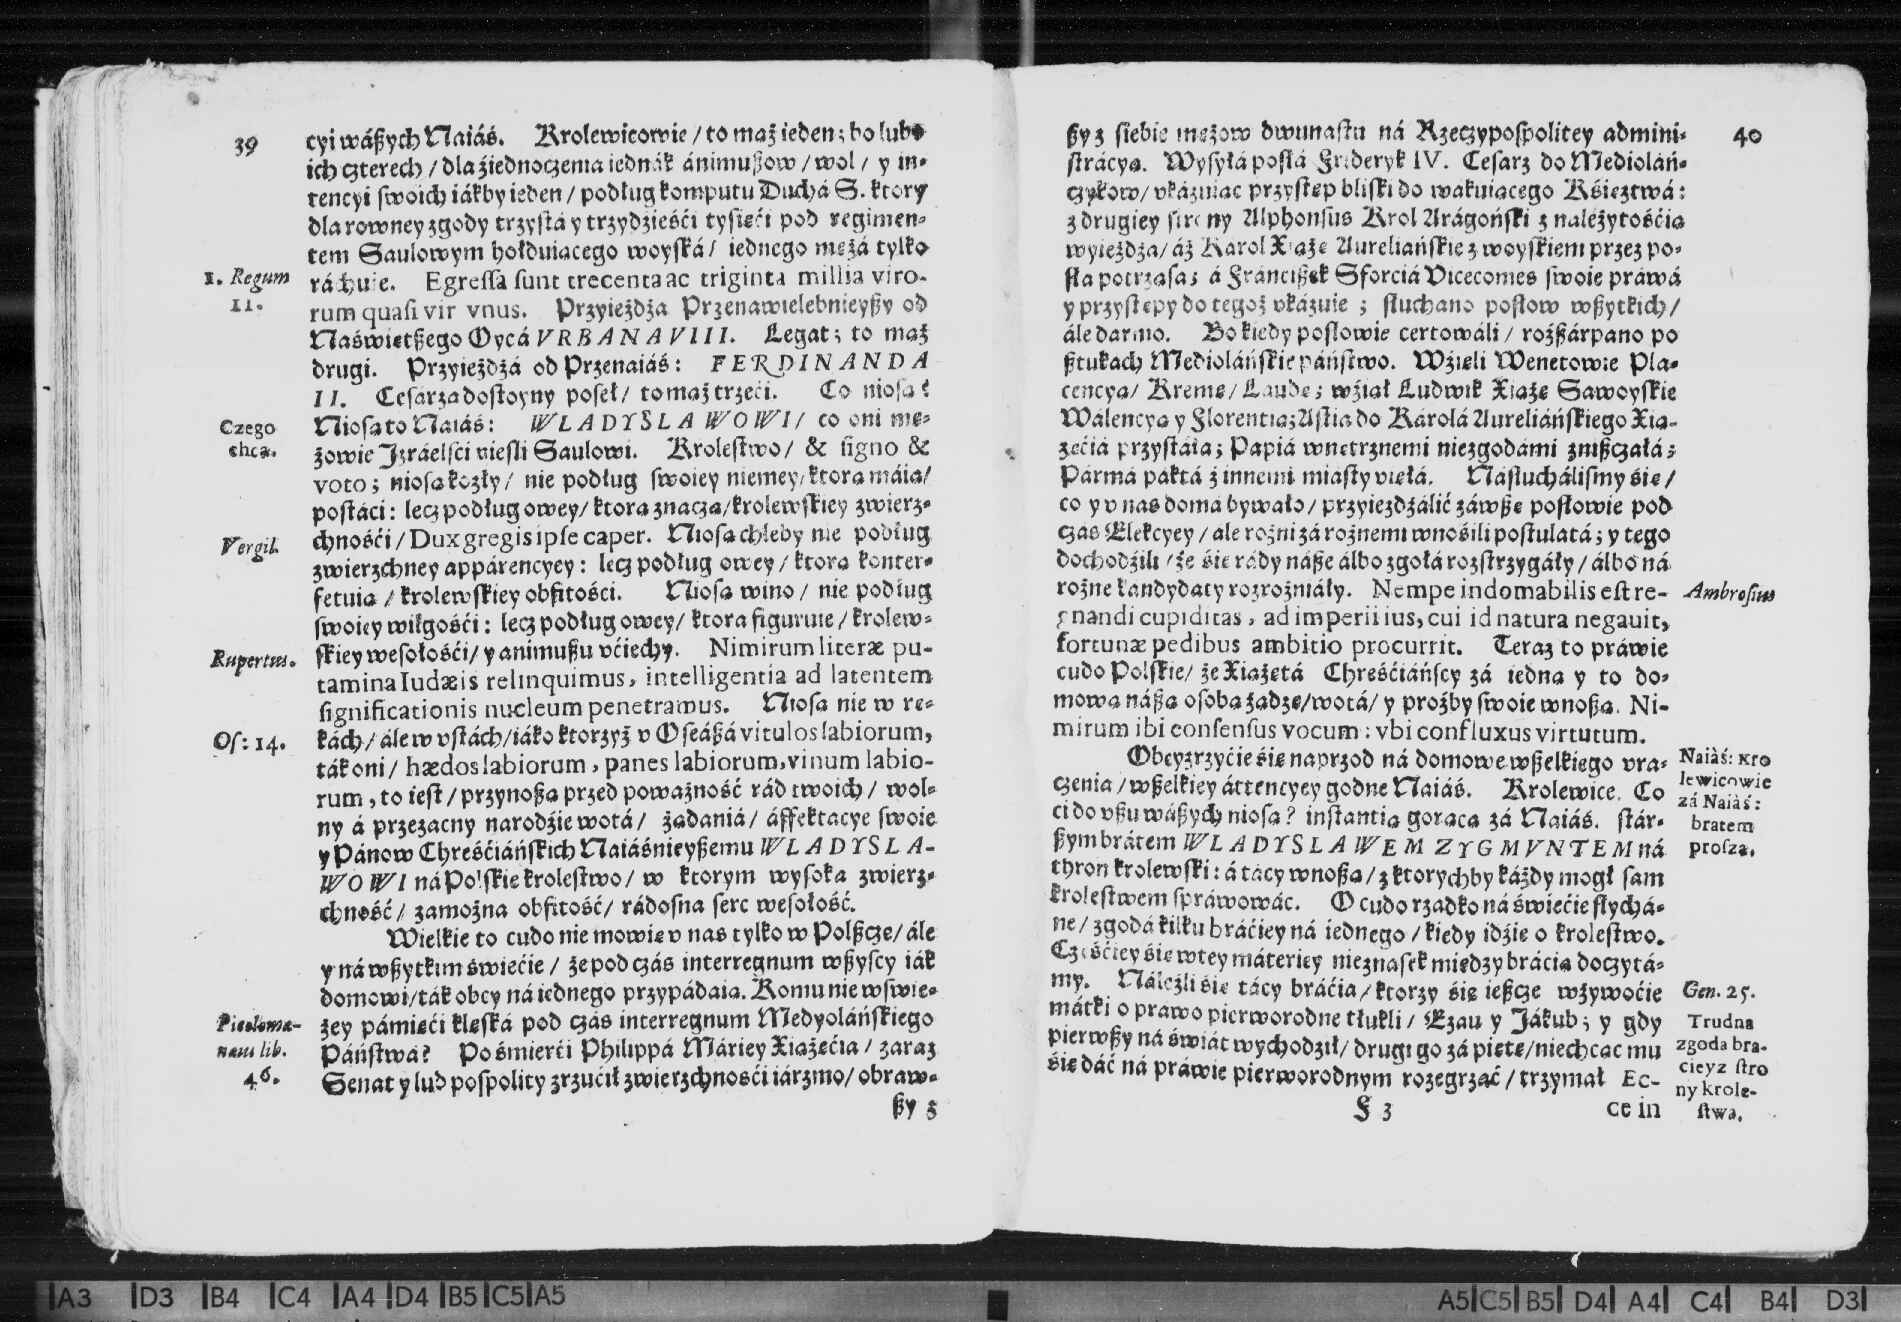 39
cyi wáßych Naiáś. Krolewicowie / to mąż ieden; bo lubo
ich czterech / dla ziednoczenia iednák ánimußow / wol / y in-
tencyi swoich iákby ieden / podług komputu Duchá S. ktory
dla rowney zgody trzystá y trzydzieśći tyśięći pod regimen-
tem Saulowym hołduiącego woyská / iednego mężá tylko
1. Regum
11.
ráchuie. Egressa sunt trecenta ac triginta millia viro-
rum quasi vir vnus. Przyieżdża Przenawielebnieyßy od
Naświętßego Oycá VRBANA VIII. Legat; to mąż
drugi. Przyieżdżá od Przenaiáś: FERDINANDA
II. Cesarza dostoyny poseł / to mąż trzeći. Co niosą?
Czego
chcą.
Niosą to Naiáś: WLADYSLAWOWI / co oni mę-
żowie Jzráelscy nieśli Saulowi. Krolestwo / & signo &
voto; niosą kozły / nie podług swoiey niemey, ktora máią /
postáci: lecz podług owey / ktora znaczą / krolewskiey zwierz-
Vergil.
chnośći / Dux gregis ipse caper. Niosą chleby nie podług
zwierzchney appárencyey: lecz podług owey / ktorą konter-
fetuią / krolewskiey obfitośći. Niosą wino / nie podług
swoiey wilgośći: lecz podług owey / ktorą figuruie / krolew-
Rupertus.
skiey wesołośći / y animußu vćiechy. Nimirum literæ pu-
tamina Iudæis relinquimus, intelligentia ad latentem
significationis nucleum penetramus. Niosą nie w rę-
Os: 14.
kách / ále w vstách / iáko ktorzyż v Oseáßá vitulos labiorum,
ták oni / hædos labiorum, panes labiorum, vinum labio-
rum, to iest / przynoßą przed poważność rád twoich / wol-
ny á przezacny narodźie wotá / żądaniá / áffektacye swoie
y Pánow Chreśćiáńskich Naiáśnieyßemu WLADYSLA-
WOWI ná Polskie krolestwo / w ktorym wysoka zwierz-
chność / zamożna obfitość / rádosna serc wesołość.
Wielkie to cudo nie mowię v nas tylko w Polßcze / ále
y ná wßytkim świećie / że pod czás interregnum wßyscy iák
domowi / ták obcy ná iednego przypádaią. Komu nie w świe-
Picolomi-
neus lib.
46.
żey pámięći klęská pod czás interregnum Medyoláńskiego
Páństwá? Po śmierći Philippá Máriey Xiążęćia / zaraz
Senat y lud pospolity zrzućił zwierzchnośći iárzmo / obraw-
ßy z
40
ßy z siebie mężow dwunastu ná Rzeczypospolitey admini-
strácyą. Wysyłá posłá Frideryk IV. Cesarz do Mediolań-
czykow / vkázuiąc przystęp bliski do wakuiącego Kśięztwá:
z drugiey strony Alphonsus Krol Arágoński z należytośćią
wyieżdża / áż Karol Xiążę Aureliańskie z woyskiem przez po-
sła potrząsa; á Fránćißek Sforciá Vicecomes swoie práwá
y przystępy do tegoż vkázuie; słuchano posłow wßytkich /
ále darmo. Bo kiedy posłowie certowáli / rozßárpano po
ßtukach Mediolańskie páństwo. Wźięli Wenetowie Pla-
cencyą / Kremę / Laudę; wźiął Ludwik Xiążę Sawoyskie
Wálencyą y Florentią; Astia do Károlá Aureliáńskiego Xią-
żęćiá przystáłá; Papiá wnętrznemi niezgodámi znißczáłá;
Pármá paktá z innemi miásty vięłá. Násłuchálismy się /
co y v nas doma bywáło / przyieżdżálić záwße posłowie pod
czás Elekcyey / ale rożni zá rożnemi wnośili postulatá; y tego
dochodźili / że się rády náße álbo zgołá rozstrzygáły / álbo ná
rożne kándydaty rozrożniáły. Nempe indomabilis est re-
Ambrosius
gnandi cupiditas, ad imperii ius, cui id natura negauit,
fortunæ pedibus ambitio procurrit. Teraz to práwie
cudo Polskie / że Xiążętá Chreśćiáńscy zá iedną y to do-
mową náßą osobą żądze / wotá / y proźby swoie wnoßą. Ni-
mirum ibi consensus vocum: vbi confluxus virtutum.
Naiàś: Kro
lewicowie
zá Naiàś:
bratem
proszą.
Obeyzrzyćie się naprzod ná domowe wßelkiego vra-
czenia / wßelkiey áttencyey godne Naiáś. Krolewice. Co
ci do vßu wáßych niosą? instantią gorącą zá Naiáś. stár-
ßym brátem WLADYSLAWEM ZYGMVNTEM ná
thron krolewski: á tácy wnoßą / z ktorychby káżdy mogł sam
krolestwem spráwowác. O cudo rzadko ná świećie słychá-
ne / zgodá kilku bráćiey ná iednego / kiedy idźie o krolestwo.
Częśćiey się w tey máteriey nieznasek między bráćią doczytá-
my. Náleźli się tácy bráćia / ktorzy się ießcze w żywoćie
Gen. 25.
Trudna
zgoda bra-
ciey z stro
ny krole-
stwa.
mátki o prawo pierworodne tłukli / Ezau y Jákub; y gdy
pierwßy ná świát wychodźił / drugi go zá piętę / niechcąc mu
się dáć ná práwie pierworodnym rozegrzać / trzymał Ec-
F 3
ce in